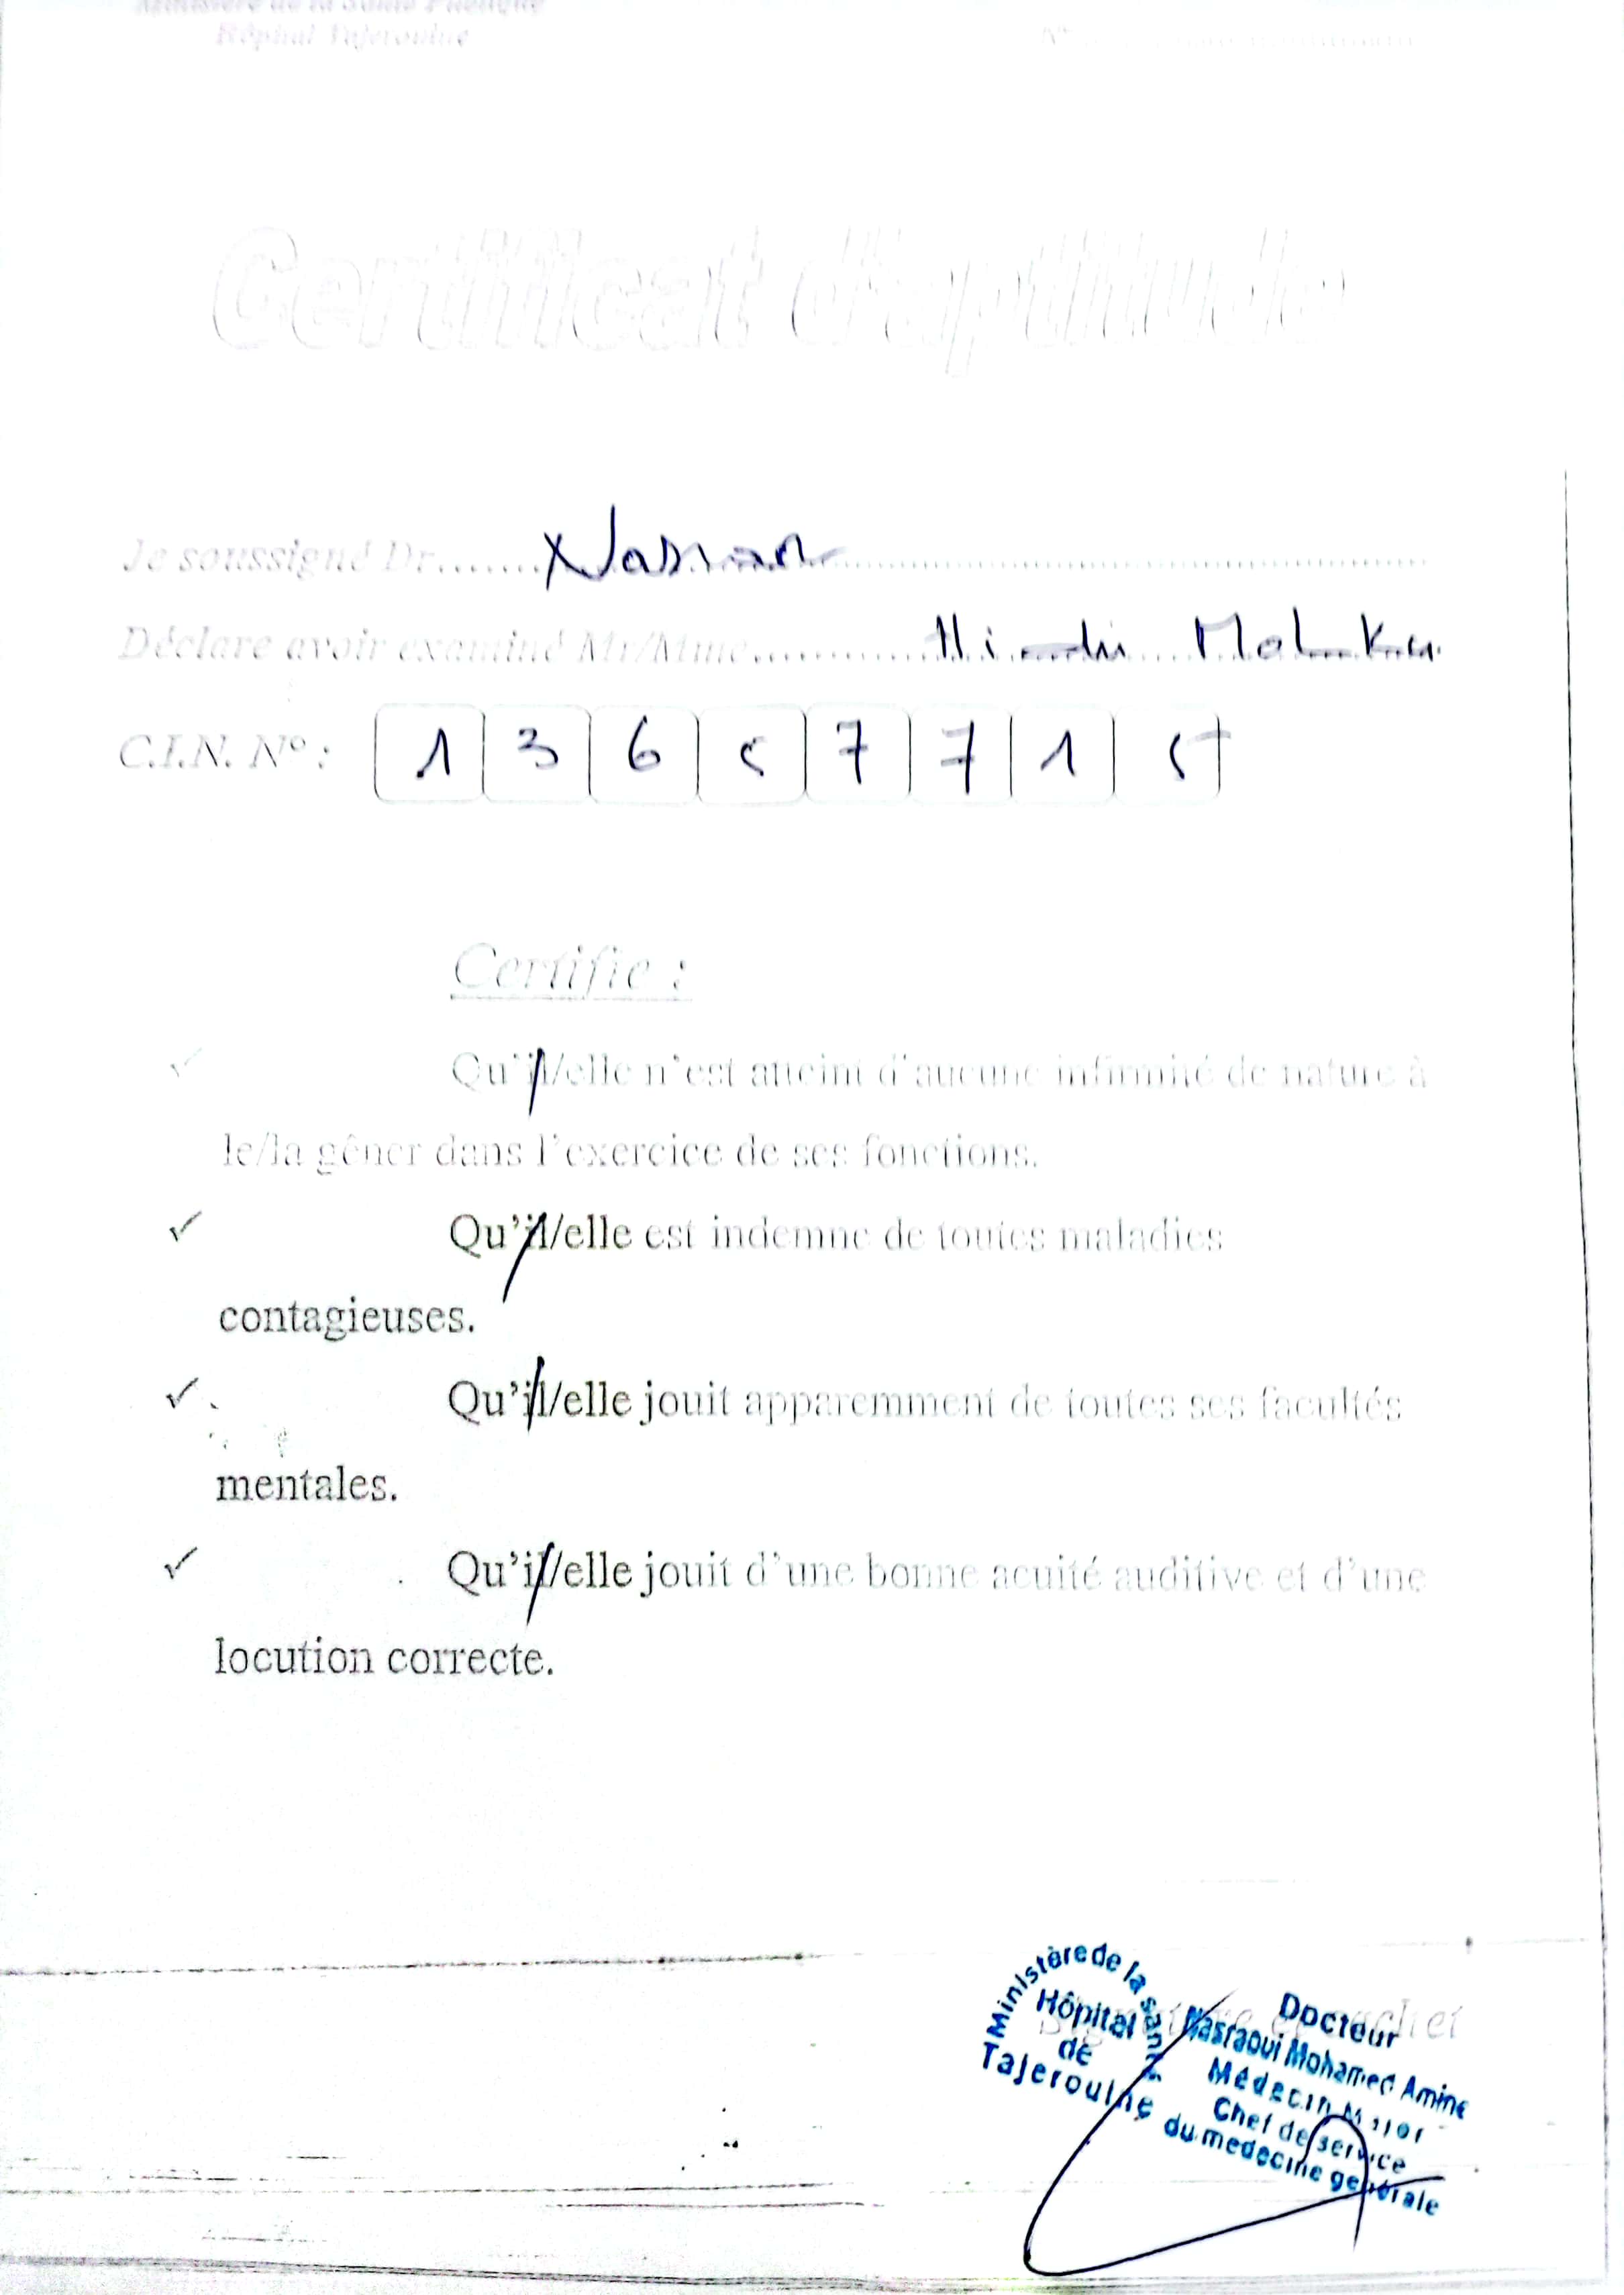 Ministère de la Santé Publique
Hôpital Tajerouine
N°
Certificat d'aptitude
Je soussigné Dr.......
Déclare avoir examiné Mr/Mme............
C.I.N. N° : 1 3 6 5 7 7 1 5
Certifie :
✓ Qu'il/elle n'est atteint d'aucune infirmité de nature à
le/la gêner dans l'exercice de ses fonctions.
✓ Qu'il/elle est indemne de toutes maladies
contagieuses.
✓ Qu'il/elle jouit apparemment de toutes ses facultés
mentales.
✓ Qu'il/elle jouit d'une bonne acuité auditive et d'une
locution correcte.
Signature et cachet
Ministère de la santé
Hôpital
de
Tajerouine
Docteur
Nasraoui Mohamed Amine
Médecin Major
Chef de service
du medecine générale